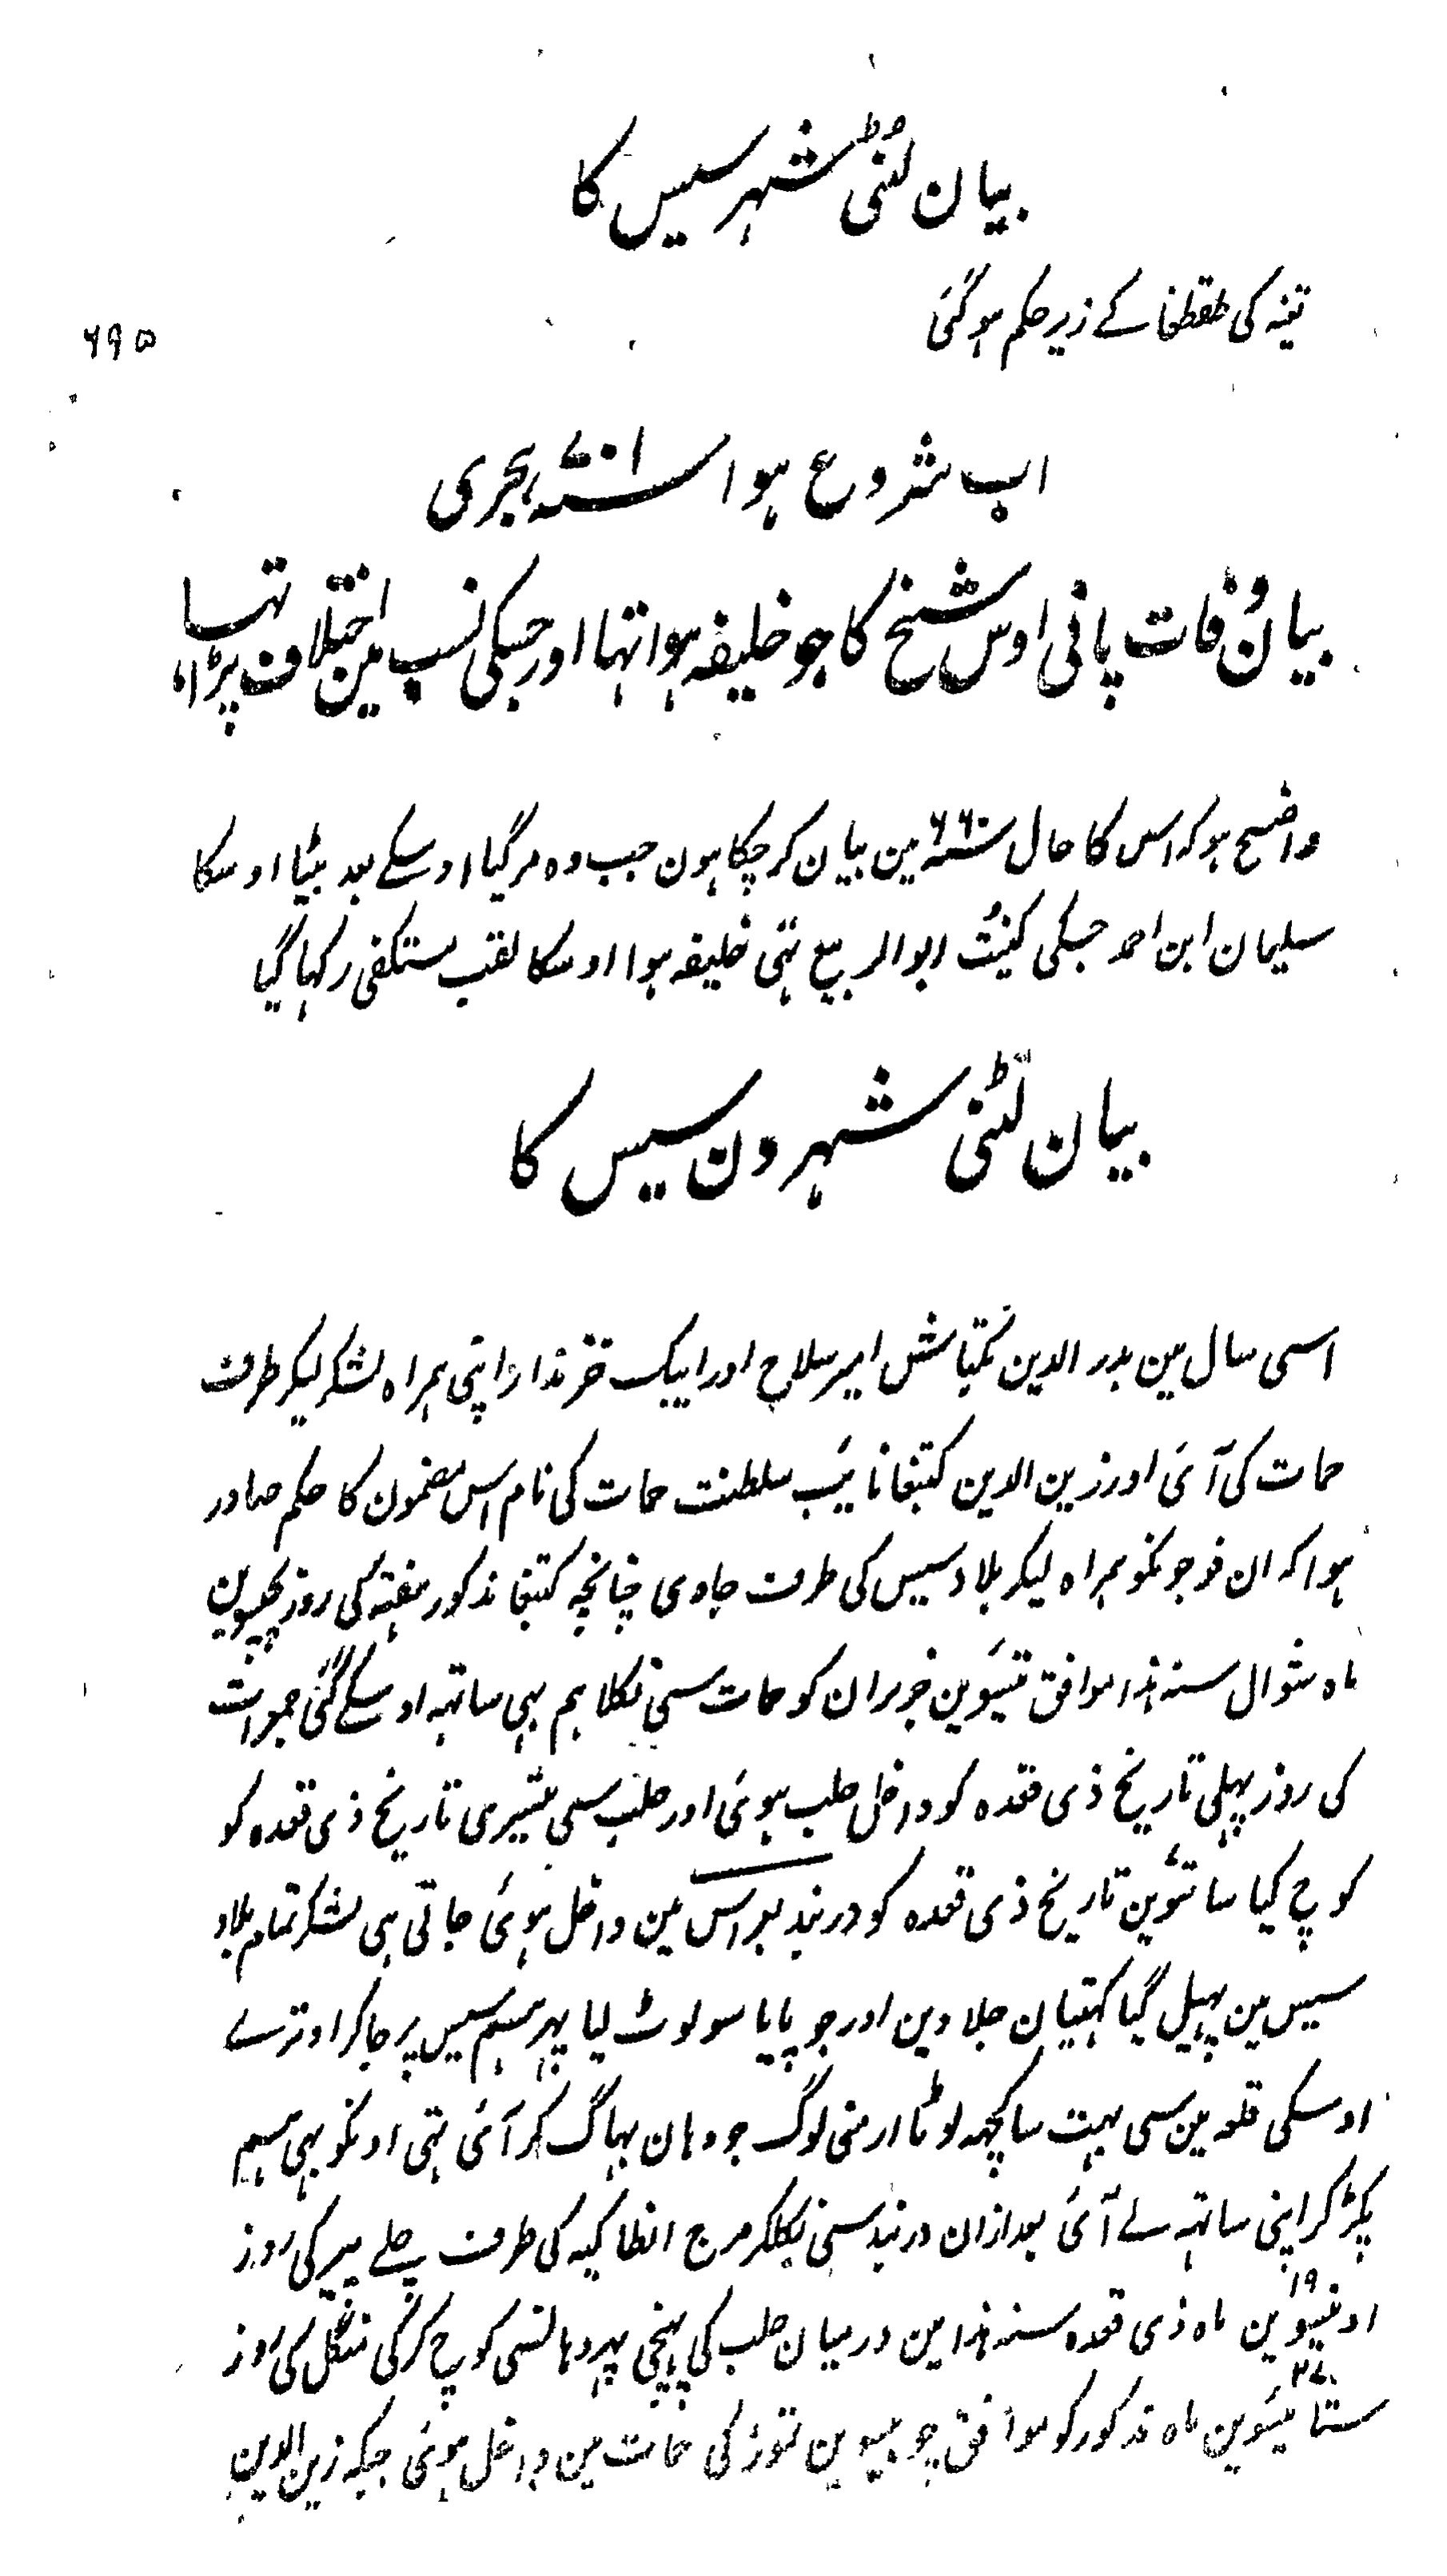 بیان لُٹنی شہر سیس کا
تیغہ کی طقطغا کے زیر حکم ہو گئی
٦٩٥
اب شروع ہوا سنہ ٧٠١ ہجری
بیان وُفات پانی اوس شخ کا جو خلیفہ ہوا تہا اور جسکی نسب مین اختلاف پڑا تہا
واضح ہو کہ اس کا حال سنہ ٦٦٠ مین بیان کر چکا ہون جب وہ مر گیا اوسکے بعد بیٹا اوسکا
سلیمان ابن احمد جسکی کنیُت ابو الربیع تہی خلیفہ ہوا اوسکا لقب مستکفی رکہا گیا
بیان لُٹنی شہرون سیس کا
اسی سال مین بدر الدین بکتاش امیر سلاح اور ایبک خزندار اپنی ہمراہ لشکر لیکر طرف
حمات کی آئی اور زین الدین کتبغا نایب سلطنت حمات کی نام اس مضمون کا حکم صادر
ہوا کہ ان فوجونکو ہمراہ لیکر بلاد سیس کی طرف جاوی چنانچہ کتبغا مذکور ہفتہ کی روز پچیسوین
ماہ شوال سنہ ہذا موافق تیئوین خزیران کو حمات سی نکلا ہم بہی ساتہہ اوسکے گئی جمعرات
کی روز پہلی تاریخ ذی قعدہ کو داخل حلب ہوئی اور حلب سی تیسری تاریخ ذی قعدہ کو
کوچ کیا ساتئوین تاریخ ذی قعدہ کو دربند بغراس مین داخل ہوئی جاتی ہی لشکر تمام بلاد
سیس مین پہیل گیا کہتیان جلا دین اور جو پایا سو لوٹ لیا پہر ہم سیس پر جا کر اوترے
اوسکی قلعہ مین سی بہت سا کچہہ لوٹا ارمنی لوگ جو وہان بہاگ کر آئی تہی اونکو بہی ہم
پکڑ کر اپنی ساتہہ لے آئی بعد ازان دربند سی نکلکر مرج انطاکیہ کی طرف چلے پیر کی روز
اونیسوین ١٩ ماہ ذی قعدہ سنہ ہذا مین درمیان حلب کی پہنچی پہر وہانسی کوچ کر کی منگل کی روز
ستائیسوین ٢٧ ماہ مذکور کو موافق چوبیسوین تموز کی حمات مین داخل ہوئی جبکہ زین الدین